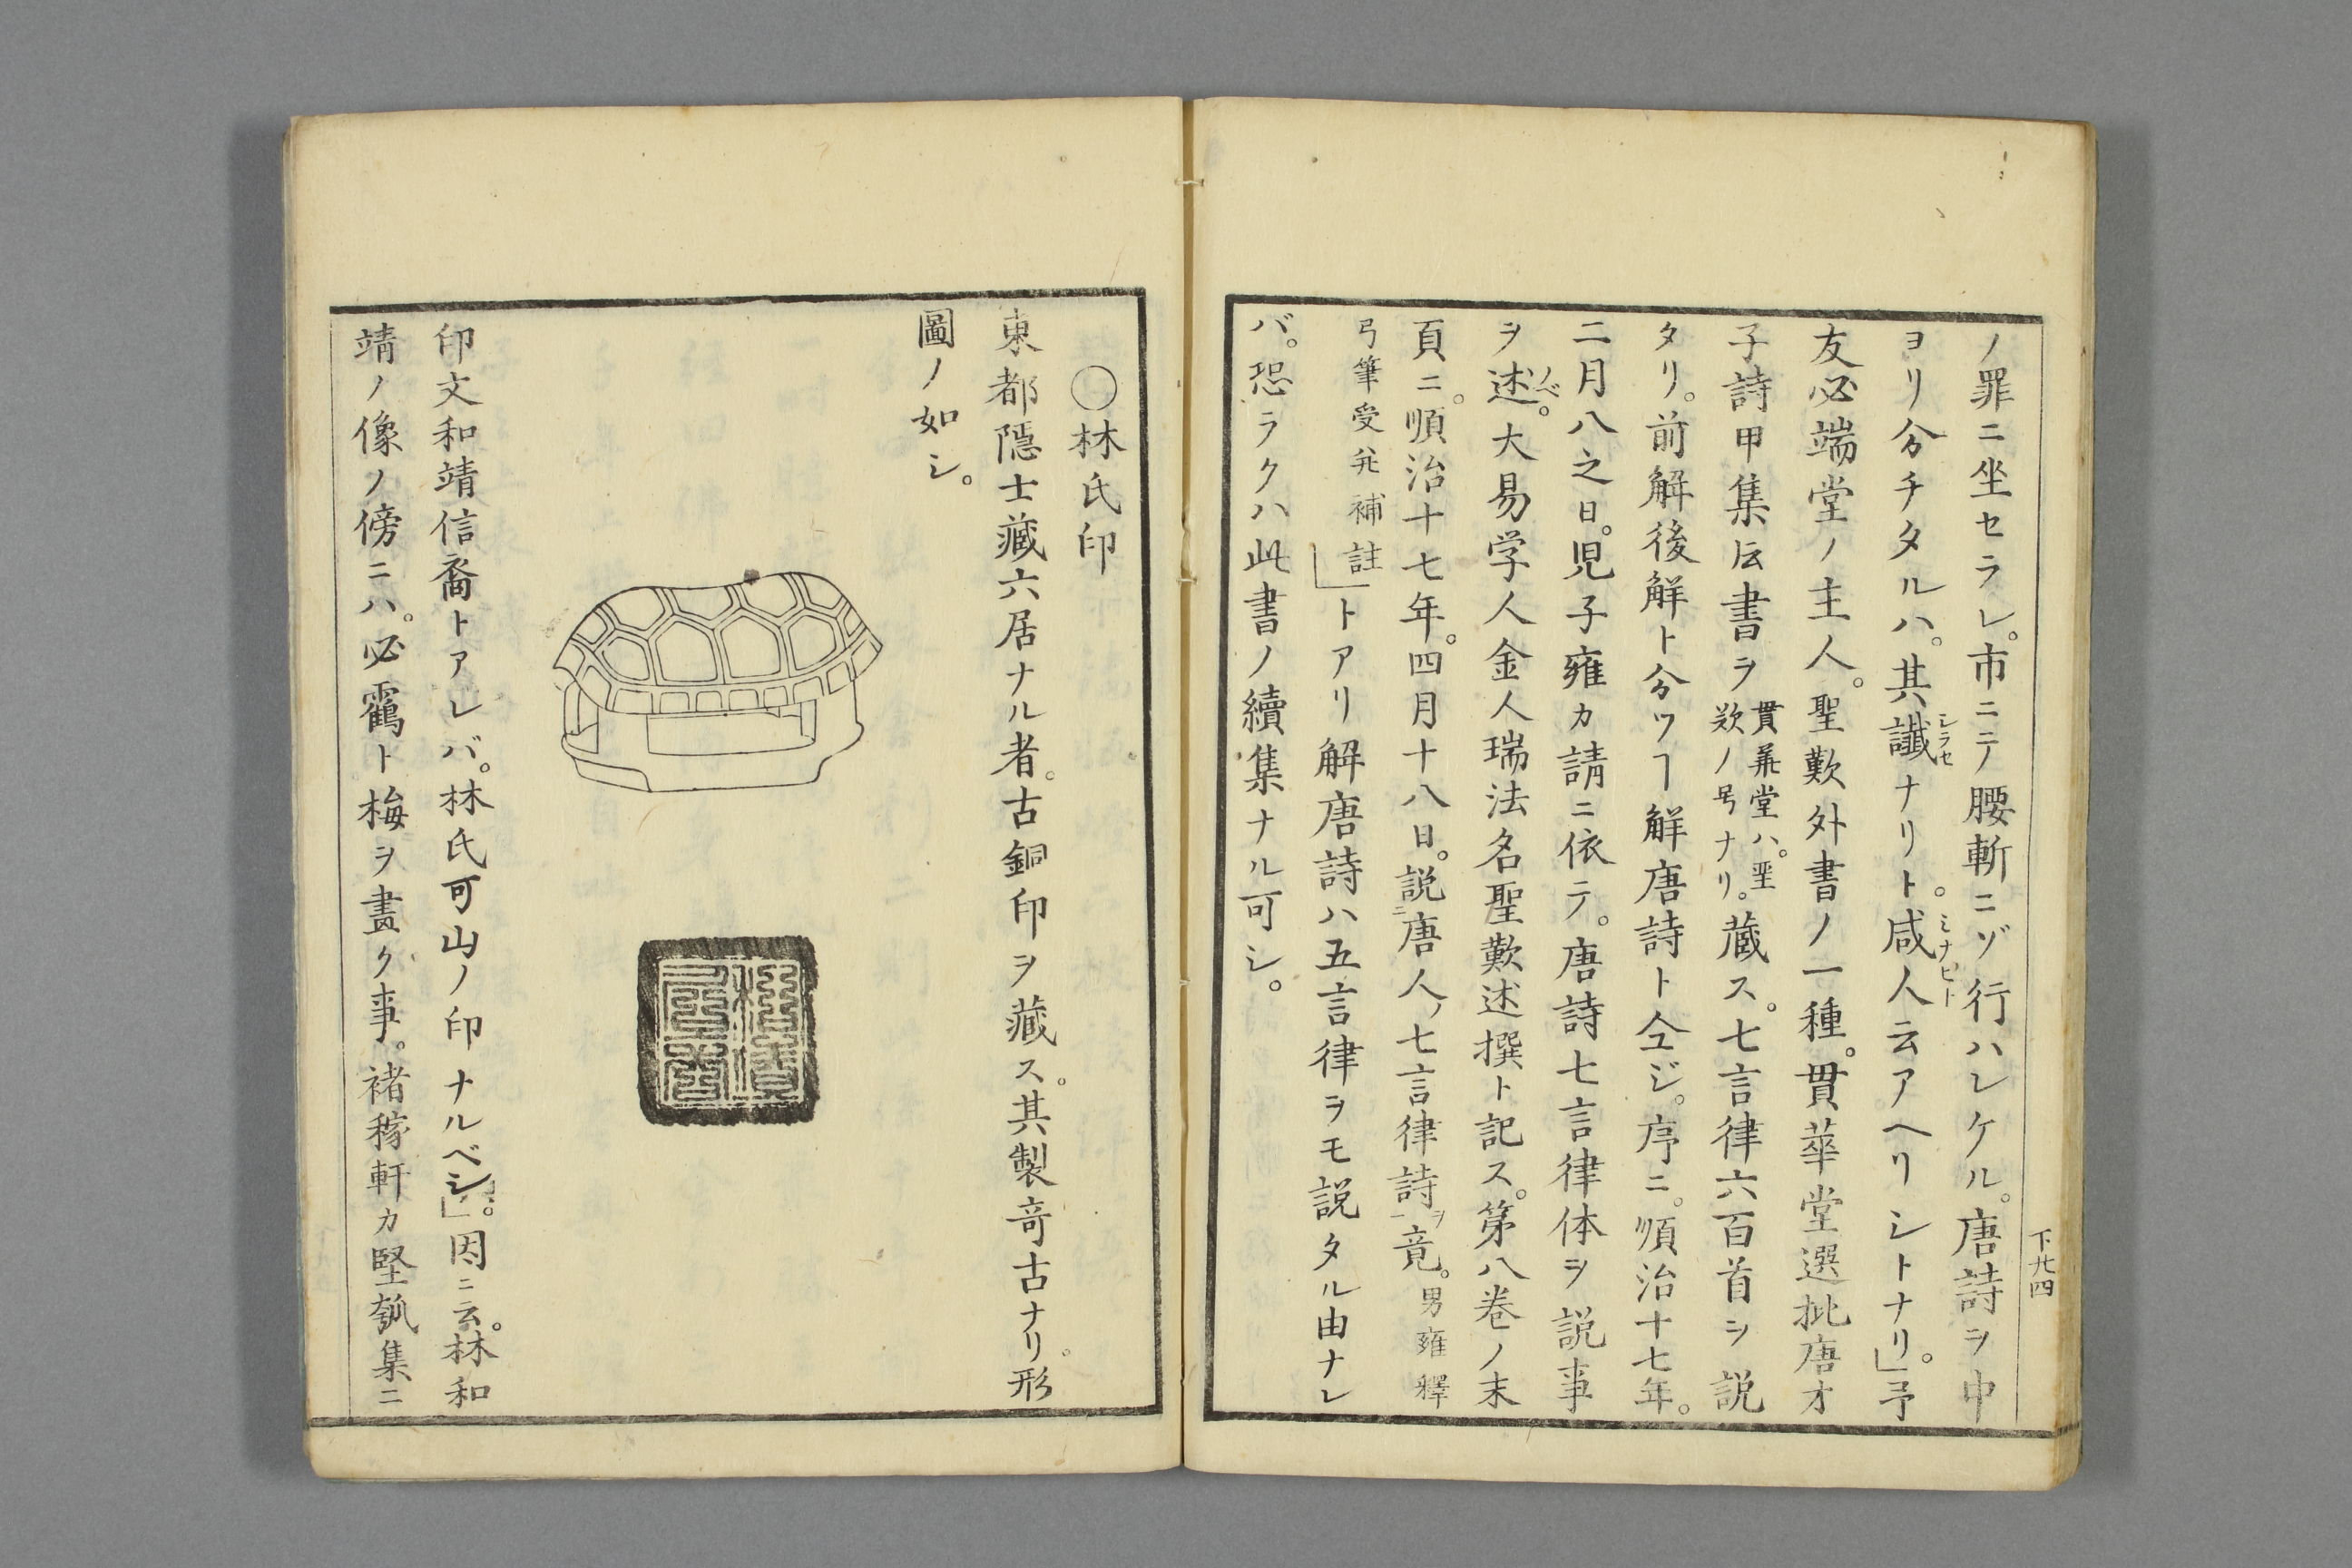 ノ罪ニ坐セラレ。市ニテ腰斬ニゾ行ハレケル。唐詩ヲ中
ヨリ分チタルハ。其讖ナリト。咸人云アヘリシトナリ。」予
シラセ
ミナヒト
友必端堂ノ主人。聖歎外書ノ一種。貫華堂選批唐才
子詩甲集㕝書ヲ
貫華堂ハ。聖
歎ノ号ナリ。
蔵ス。七言律六百首ヲ説
タリ。前解後解ト分ツヿ解唐詩ト仝ジ。序ニ。順治十七年。
二月八之日。児子雍カ請ニ依テ。唐詩七言律体ヲ説事
ヲ述。大易学人金人瑞法名聖歎述撰ト記ス。第八巻ノ末
ノベ
頁ニ。順治十七年。四月十八日。説ニ唐人ノ七言律詩ヲ一竟。男雍釋
弓筆受并補註」トアリ解唐詩ハ五言律ヲモ説タル由ナレ
バ。恐ラクハ此書ノ續集ナル可シ。
下廿四
○林氏印
東都隠士蔵六居ナル者。古銅印ヲ蔵ス。其製竒古ナリ。形
圖ノ如シ。
印文和靖信裔トアレバ。林氏可山ノ印ナルベシ」。因ニ云。林和
靖ノ像ノ傍ニハ。必霍鳥ト梅ヲ畫ク事。褚稼軒カ堅瓠集ニ